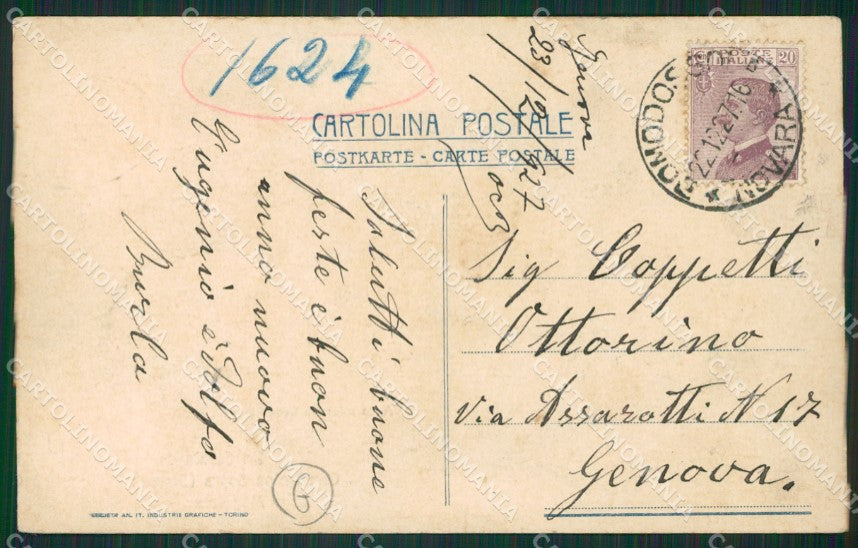 1624
Genova
23/12/927
CARTOLINA POSTALE
POSTKARTE - CARTE POSTALE
POSTE ITALIANE 20
DOMODOSSOLA
22.12.27.16
NOVARA
Saluti i buone
feste e buon
anno nuovo
Eugenio e
Burla
Sig Coppetti
Ottorino
Via Assarotti N 17
Genova.
6
AN. IT. INDUSTRIE GRAFICHE - TORINO
CARTOLINOMANIA